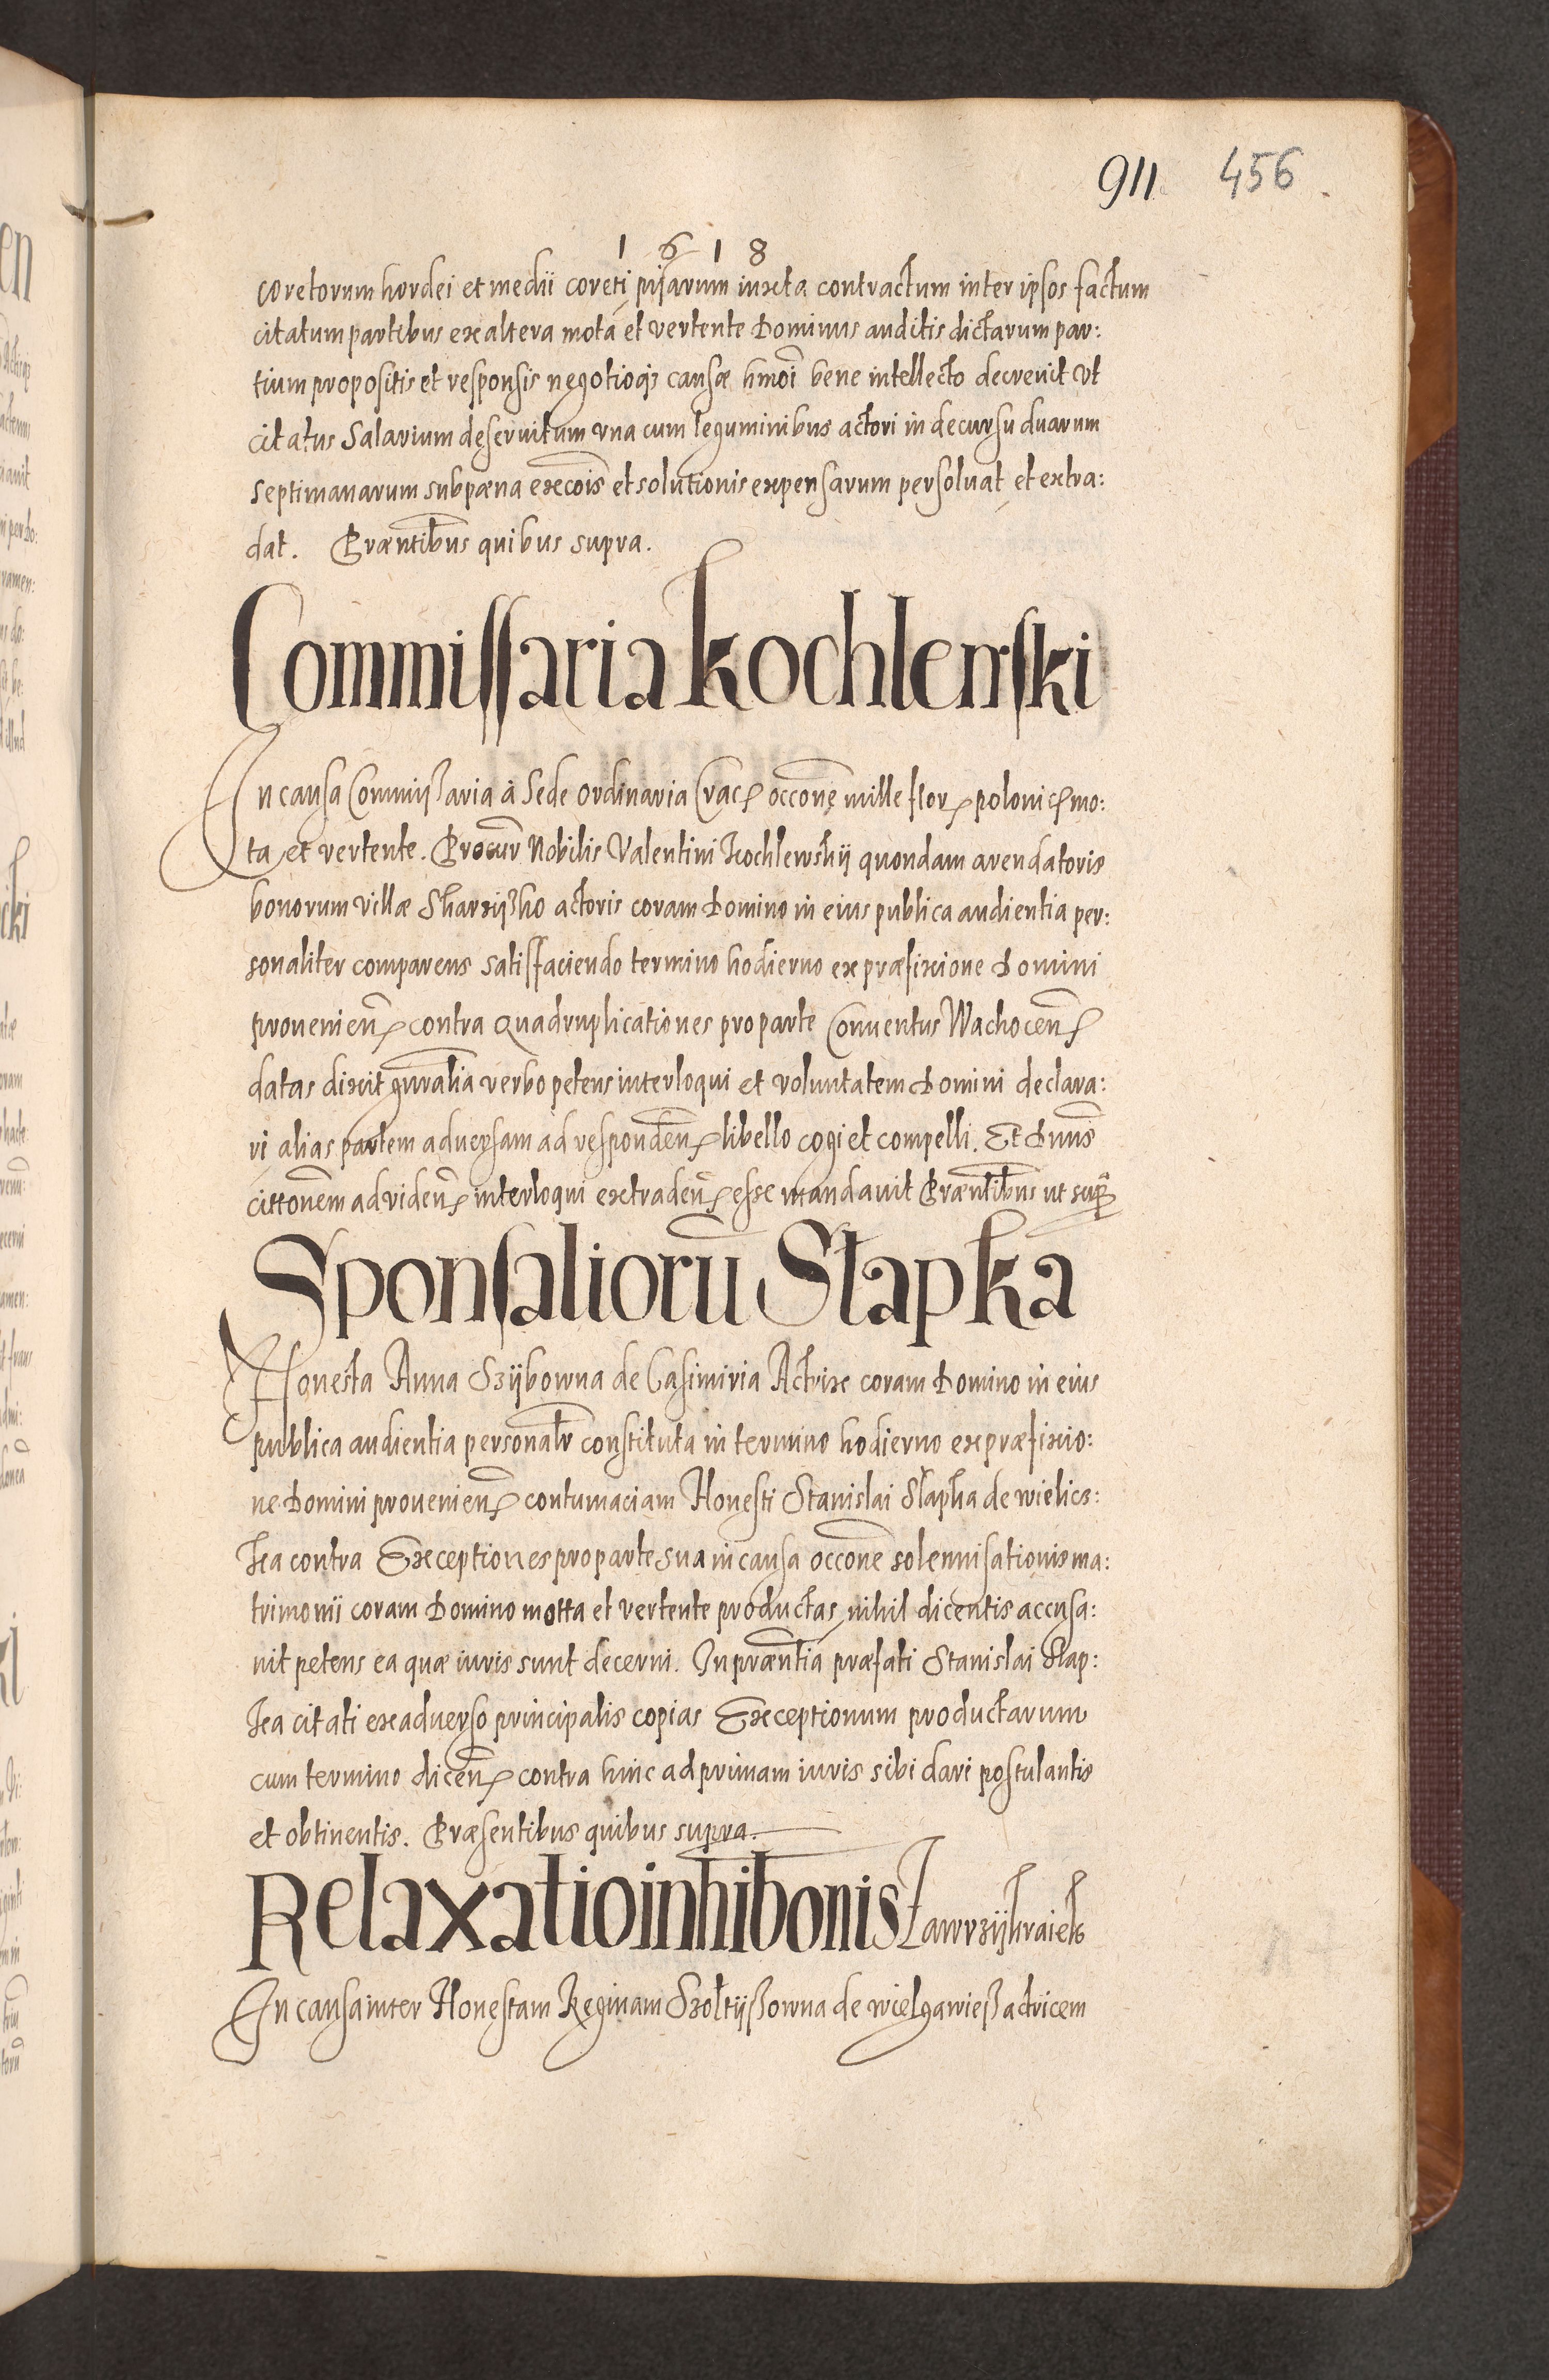 911 456
1618
coretorum hordei et medii coreti pisarum iuxta contractum inter ipsos factum
citatum partibus ex altera mota et vertente Dominus auditis dictarum par:
tium propositis et responsis negotioq₃ causæ hmoi bene intellecto decrevit vt
citatus Salarium deseruitum vna cum leguminibus actori in decursu duarum
septimanarum sub pœna execõis et solutionis expensarum persoluat et extra:
dat. Præntibus quibus supra.
Commissaria Kochlewski
In causa Commissaria à Sede Ordinaria Crac. occone mille flor. polonic. mo:
ta et vertente. Procur Nobilis Valentini Kochlewskij quondam arendatoris
bonorum villæ Skarzijsko actoris coram Domino in eius publica audientia per:
sonaliter comparens satisfaciendo termino hodierno ex præfixione Domini
provenien. contra Quadruplicationes pro parte Conuentus Wachocen.
datas dixit gnralia verbo petens interloqui et voluntatem Domini declara:
ri alias partem aduersam ad responden. libello cogi et compelli. Et Dnus
cittonem ad viden. interloqui extraden. esse mandauit Præntibus ut supr
Sponsaliorũ Słapka
Honesta Anna Szijbowna de Casimiria Actrix coram Domino in eius
publica audientia personalr constituta in termino hodierno ex præfixio:
ne Domini provenien. contumaciam Honesti Stanislai Słapka de wielicz:
ka contra Exceptiones pro parte sua in causa occone solennisationis ma:
trimonii coram Domino motta et vertente productas nihil dicentis accusa:
uit petens ea quæ iuris sunt decerni. In præntia præfati Stanislai Słap:
ka citati ex aduerso principalis copias Exceptionum productarum
cum termino dicen. contra hinc ad primam iuris sibi dari postulantis
et obtinentis. Præsentibus quibus supra.
Relaxatio inhibonis Ławrzijkraiek
In causa inter Honestam Reginam Szołtijßowna de wielgawieß actricem